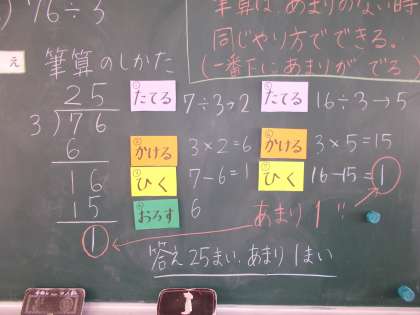 76÷3
筆算は あまりのない時
同じやり方でできる。
(一番下にあまりがでる)
え
筆算のしかた
25
3)76
6
16
15
1
① たてる 7÷3→2
② かける 3×2=6
③ ひく 7-6=1
④ おろす 6
たてる 16÷3→5
かける 3×5=15
ひく 16-15=1
あまり 1!!
答え 25まい、あまり 1まい